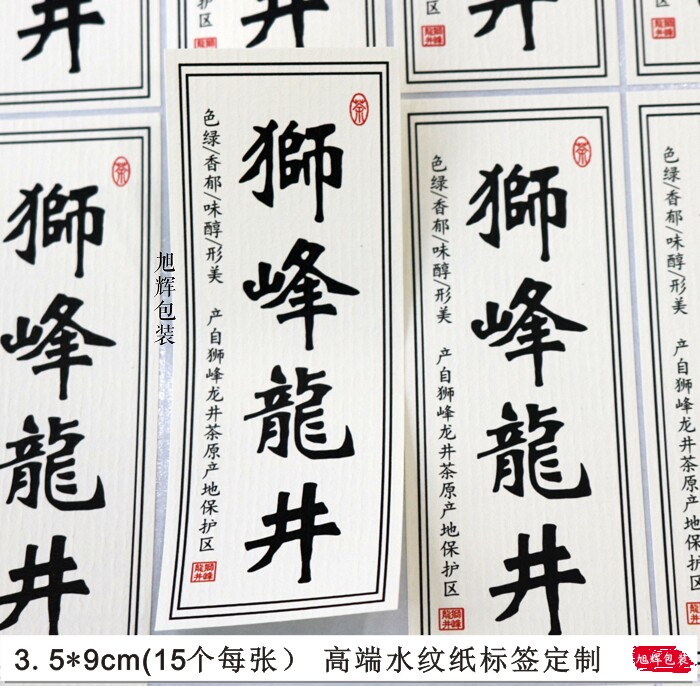 井
井
护
区
獅峰
龍井
茶
獅峰龍井
茶
獅峰龍井
色绿/香郁/味醇/形美 产自狮峰龙井茶原产地保护区
獅峰
龍井
旭辉包装
茶
獅峰龍井
色绿/香郁/味醇/形美 产自狮峰龙井茶原产地保护区
獅峰
龍井
色绿/香郁/味醇/形美 产自狮峰龙井茶原产地保护区
3.5*9cm(15个每张） 高端水纹纸标签定制
旭辉包装